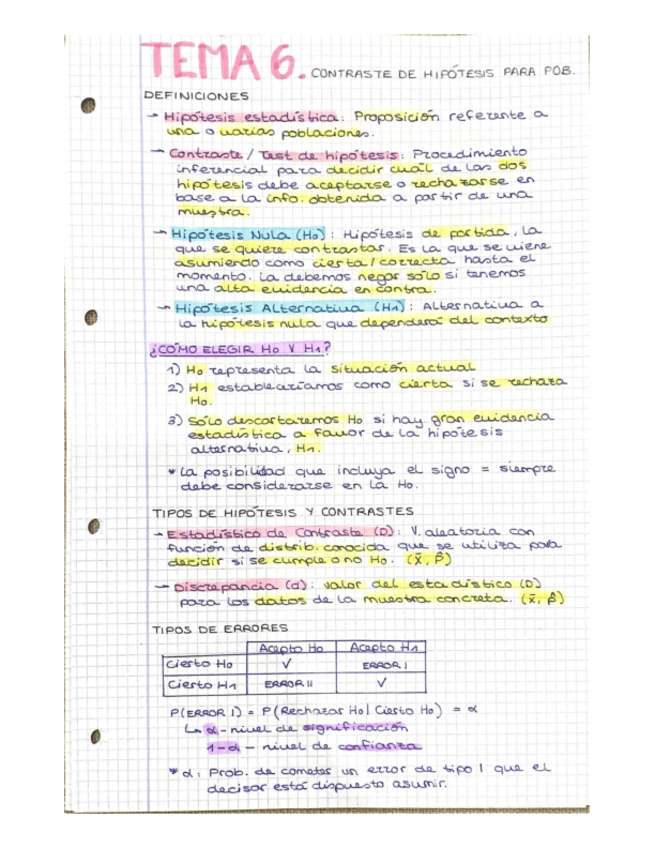 TEMA 6. CONTRASTE DE HIPÓTESIS PARA POB.
DEFINICIONES
→ Hipótesis estadística: Proposición referente a
una o varias poblaciones.
→ Contraste / Test de hipótesis: Procedimiento
inferencial para decidir cuál de las dos
hipótesis debe aceptarse o rechazarse en
base a la info. obtenida a partir de una
muestra.
→ Hipótesis Nula (H0): Hipótesis de partida, la
que se quiere contrastar. Es la que se viene
asumiendo como cierta/correcta hasta el
momento. La debemos negar sólo si tenemos
una alta evidencia en contra.
→ Hipótesis Alternativa (H1): Alternativa a
la hipótesis nula que dependerá del contexto
¿CÓMO ELEGIR H0 Y H1?
1) H0 representa la situación actual
2) H1 estableceríamos como cierta si se rechaza
H0.
3) Sólo descartaremos H0 si hay gran evidencia
estadística a favor de la hipótesis
alternativa, H1.
* La posibilidad que incluya el signo = siempre
debe considerarse en la H0.
TIPOS DE HIPÓTESIS Y CONTRASTES
→ Estadístico de Contraste (D): V. aleatoria con
función de distrib. conocida que se utiliza para
decidir si se cumple o no H0. (X̄, P̂)
→ Discrepancia (d): valor del estadístico (D)
para los datos de la muestra concreta. (x̄, p̂)
TIPOS DE ERRORES
Acepto H0 Acepto H1
Cierto H0 ✓ ERROR I
Cierto H1 ERROR II ✓
P(ERROR I) = P(Rechazar H0 | Cierto H0) = α
↳ α - nivel de significación
1-α - nivel de confianza
* α: Prob. de cometer un error de tipo I que el
decisor está dispuesto asumir.